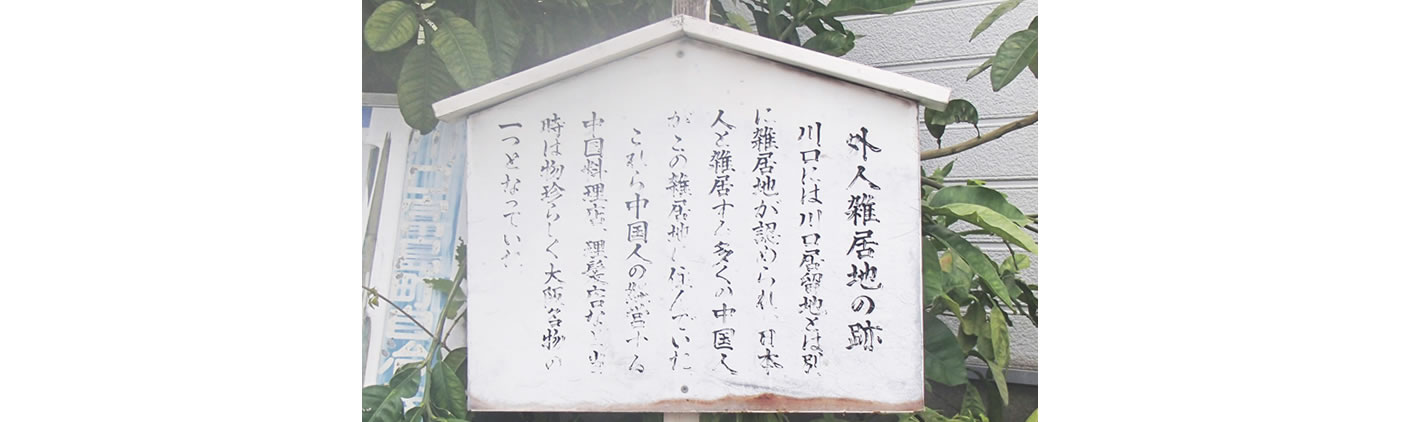 外人雑居地の跡
川口には川口居留地とは別
に雑居地が認められ、日本
人と雑居する多くの中国人
がこの雑居地に住んでいた
これら中国人の経営する
中国料理店、理髪店など当
時は物珍らしく大阪名物の
一つとなっていた